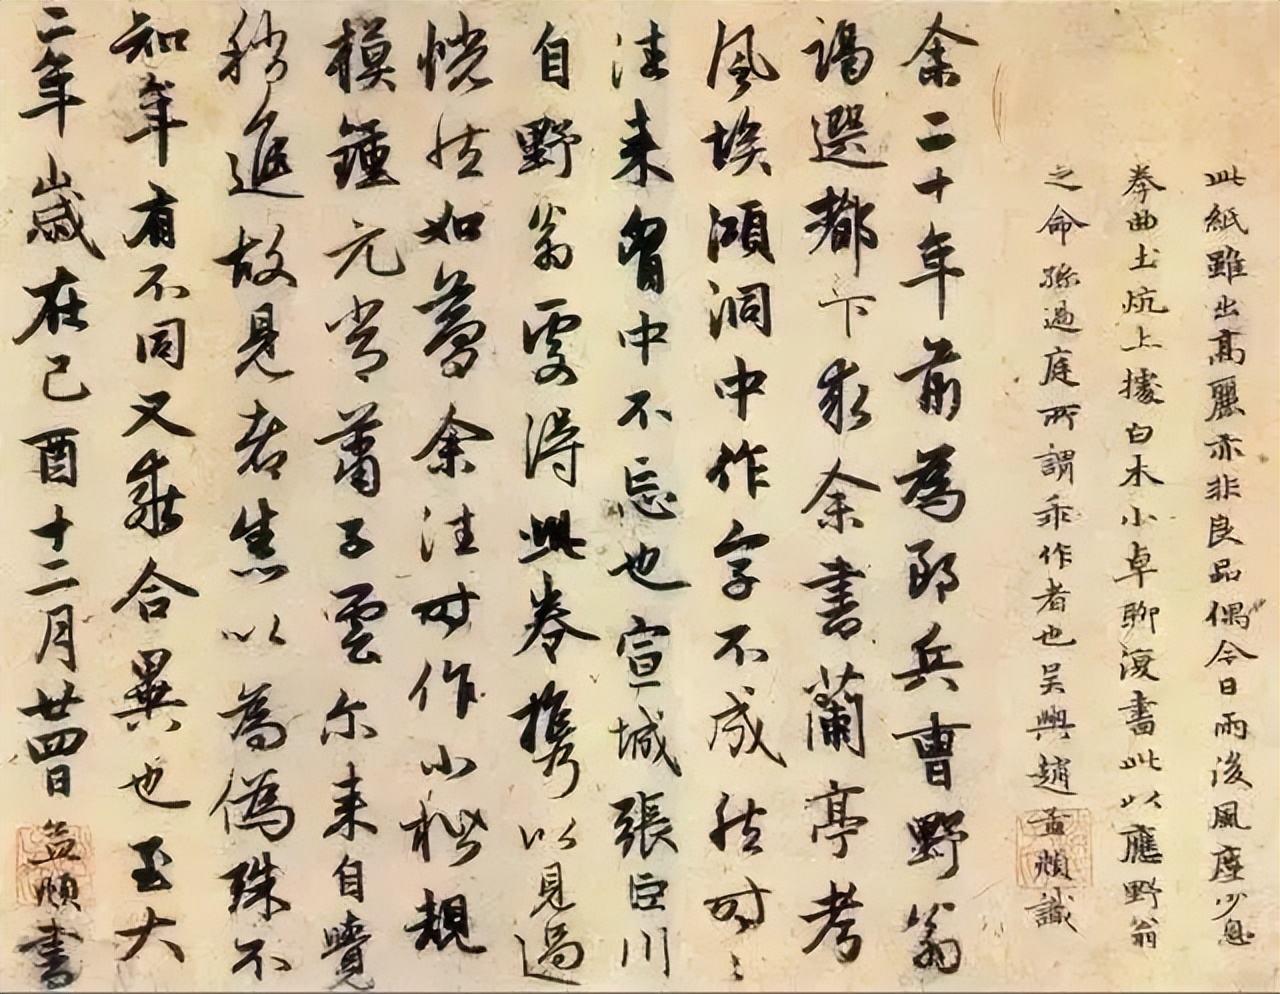 此紙雖出高麗亦非良品偶今日雨後風塵少息
拳曲土炕上據白木小卓聊復書此以應野翁
之命孫過庭所謂乖作者也吳興趙孟頫識
余二十年前為郎兵曹野翁
謁選都下求余書蘭亭考
風埃澒洞中作字不成然時〻
往来胷中不忘也宣城張臣川
自野翁處得此卷攜以見過
恍然如夢余往時作小楷規
模鍾元常蕭子雲尔来自覺
稍進故見者焦以為偽殊不
知年有不同又乖合異也至大
二年歲在己酉十二月廿四日孟頫書